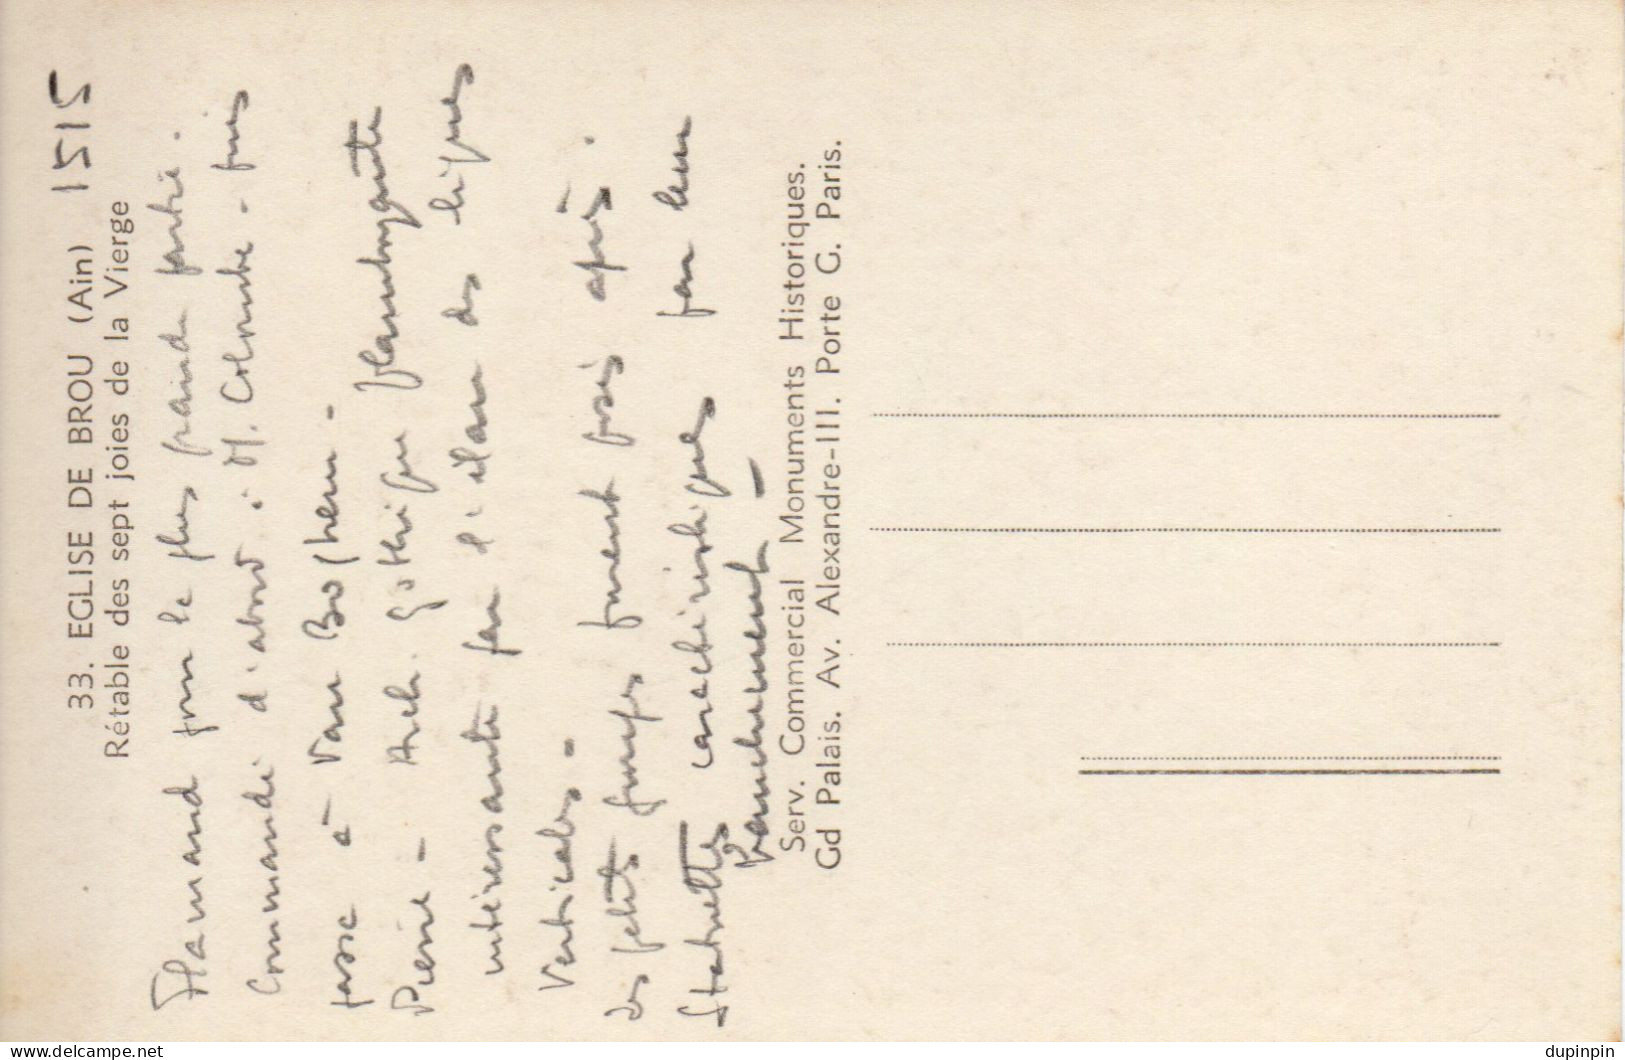 33. EGLISE DE BROU (Ain) 1515
Rétable des sept joies de la Vierge
Flamand pour la plus grande partie.
Commandé d'abord à M. Colombe - puis
passe à Van Boghem -
Pierre - Arch. gothique flamboyante
intéressante par l'élan des lignes
Verticales -
Les petits groupes furent posés après.
Statuettes caractéristiques par leur
Serv. Commercial Monuments Historiques.
Gd Palais. Av. Alexandre-III. Porte C. Paris.
dupinpin
www.delcampe.net